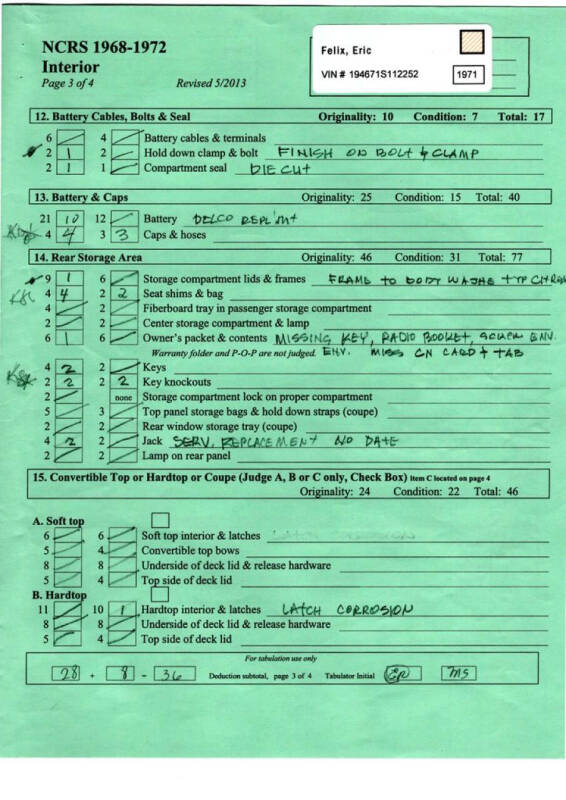 NCRS 1968-1972
Interior
Page 3 of 4 Revised 5/2013
Felix, Eric
VIN # 194671S112252 1971
12. Battery Cables, Bolts & Seal Originality: 10 Condition: 7 Total: 17
6 4 Battery cables & terminals
2 1 2 Hold down clamp & bolt FINISH ON BOLT & CLAMP
2 1 1 Compartment seal DIE CUT
13. Battery & Caps Originality: 25 Condition: 15 Total: 40
21 10 12 Battery DELCO REPL'MT
4 4 3 3 Caps & hoses
14. Rear Storage Area Originality: 46 Condition: 31 Total: 77
9 1 6 Storage compartment lids & frames FRAME TO BODY
4 4 2 2 Seat shims & bag
4 2 Fiberboard tray in passenger storage compartment
2 2 Center storage compartment & lamp
6 1 6 Owner's packet & contents MISSING KEY, RADIO BOOKET, ENV.
Warranty folder and P-O-P are not judged. ENV. MISS CARD + TAB
4 2 2 Keys
2 2 2 2 Key knockouts
2 none Storage compartment lock on proper compartment
5 3 Top panel storage bags & hold down straps (coupe)
2 2 Rear window storage tray (coupe)
4 2 2 Jack SERV. REPLACEMENT NO DATE
2 2 Lamp on rear panel
15. Convertible Top or Hardtop or Coupe (Judge A, B or C only, Check Box) Item C located on page 4
Originality: 24 Condition: 22 Total: 46
A. Soft top
6 6 Soft top interior & latches
5 4 Convertible top bows
8 8 Underside of deck lid & release hardware
5 4 Top side of deck lid
B. Hardtop
11 10 1 Hardtop interior & latches LATCH CORROSION
8 8 Underside of deck lid & release hardware
5 4 Top side of deck lid
For tabulation use only
28 + 8 - 36 Deduction subtotal, page 3 of 4 Tabulator Initial MS